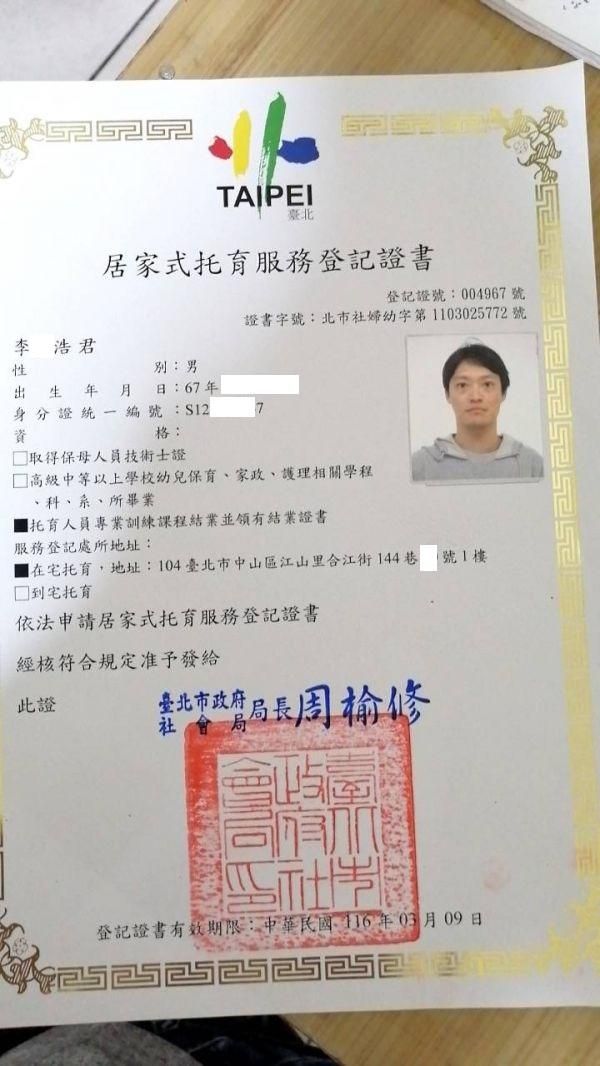 TAIPEI
臺北
居家式托育服務登記證書
登記證號：004967 號
證書字號：北市社婦幼字第 1103025772 號
李 浩 君
性別：男
出生年月日：67 年
身分證統一編號：S12 7
資格：
□取得保母人員技術士證
□高級中等以上學校幼兒保育、家政、護理相關學程
、科、系、所畢業
■托育人員專業訓練課程結業並領有結業證書
服務登記處所地址：
■在宅托育，地址：104 臺北市中山區江山里合江街 144 巷 號 1 樓
□到宅托育
依法申請居家式托育服務登記證書
經核符合規定准予發給
此證
臺北市政府
社會局局長周榆修
臺北市政府社會局印
登記證書有效期限：中華民國 116 年 03 月 09 日